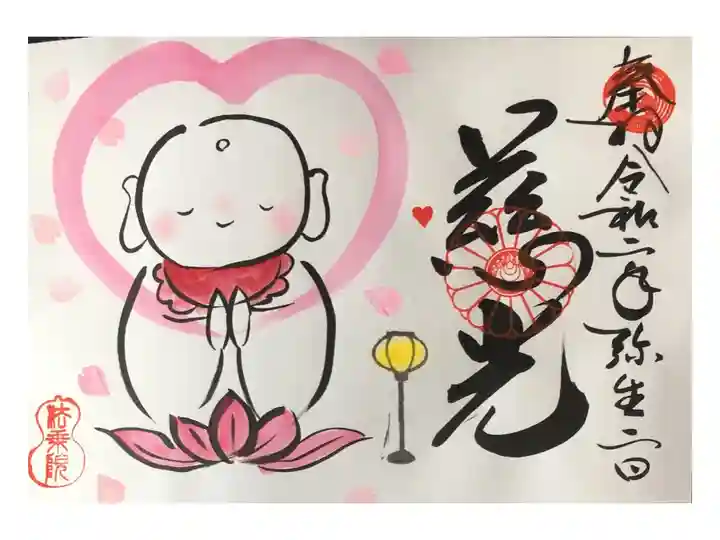 奉拝 令和二年弥生二日
慈光
法乗院